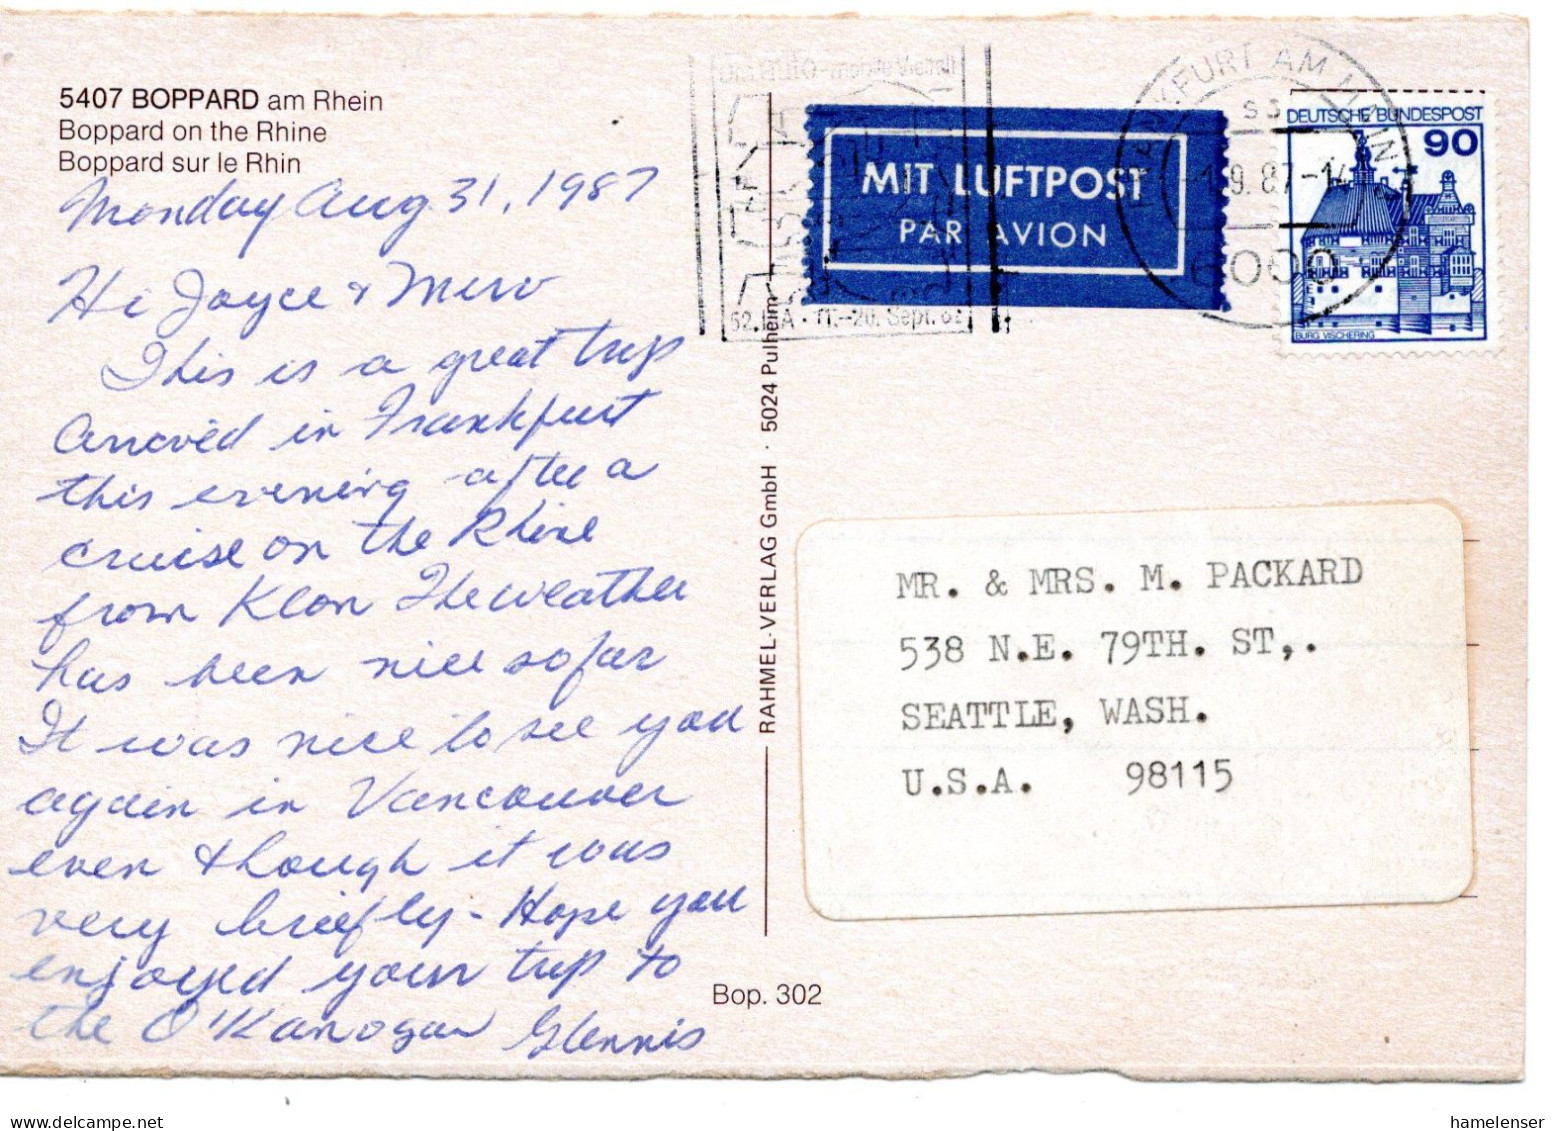 5407 BOPPARD am Rhein
Boppard on the Rhine
Boppard sur le Rhin
Monday Aug 31, 1987
Hi Joyce & Merv
This is a great trip
Arrived in Frankfurt
this evening after a
cruise on the Rhine
from Klon The weather
has been nice so far
It was nice to see you
again in Vancouver
even though it was
very briefly - Hope you
enjoyed your trip to
the O'Kanogan Glennis
Bop. 302
RAHMEL-VERLAG GmbH · 5024 Pulheim
auto-mobile Vielfalt
52. IAA · 17.-20. Sept. 87
MIT LUFTPOST
PAR AVION
FRANKFURT AM MAIN
ss
-1.9.87-14
6000
DEUTSCHE BUNDESPOST
90
BURG VISCHERING
MR. & MRS. M. PACKARD
538 N.E. 79TH. ST,.
SEATTLE, WASH.
U.S.A. 98115
hamelenser